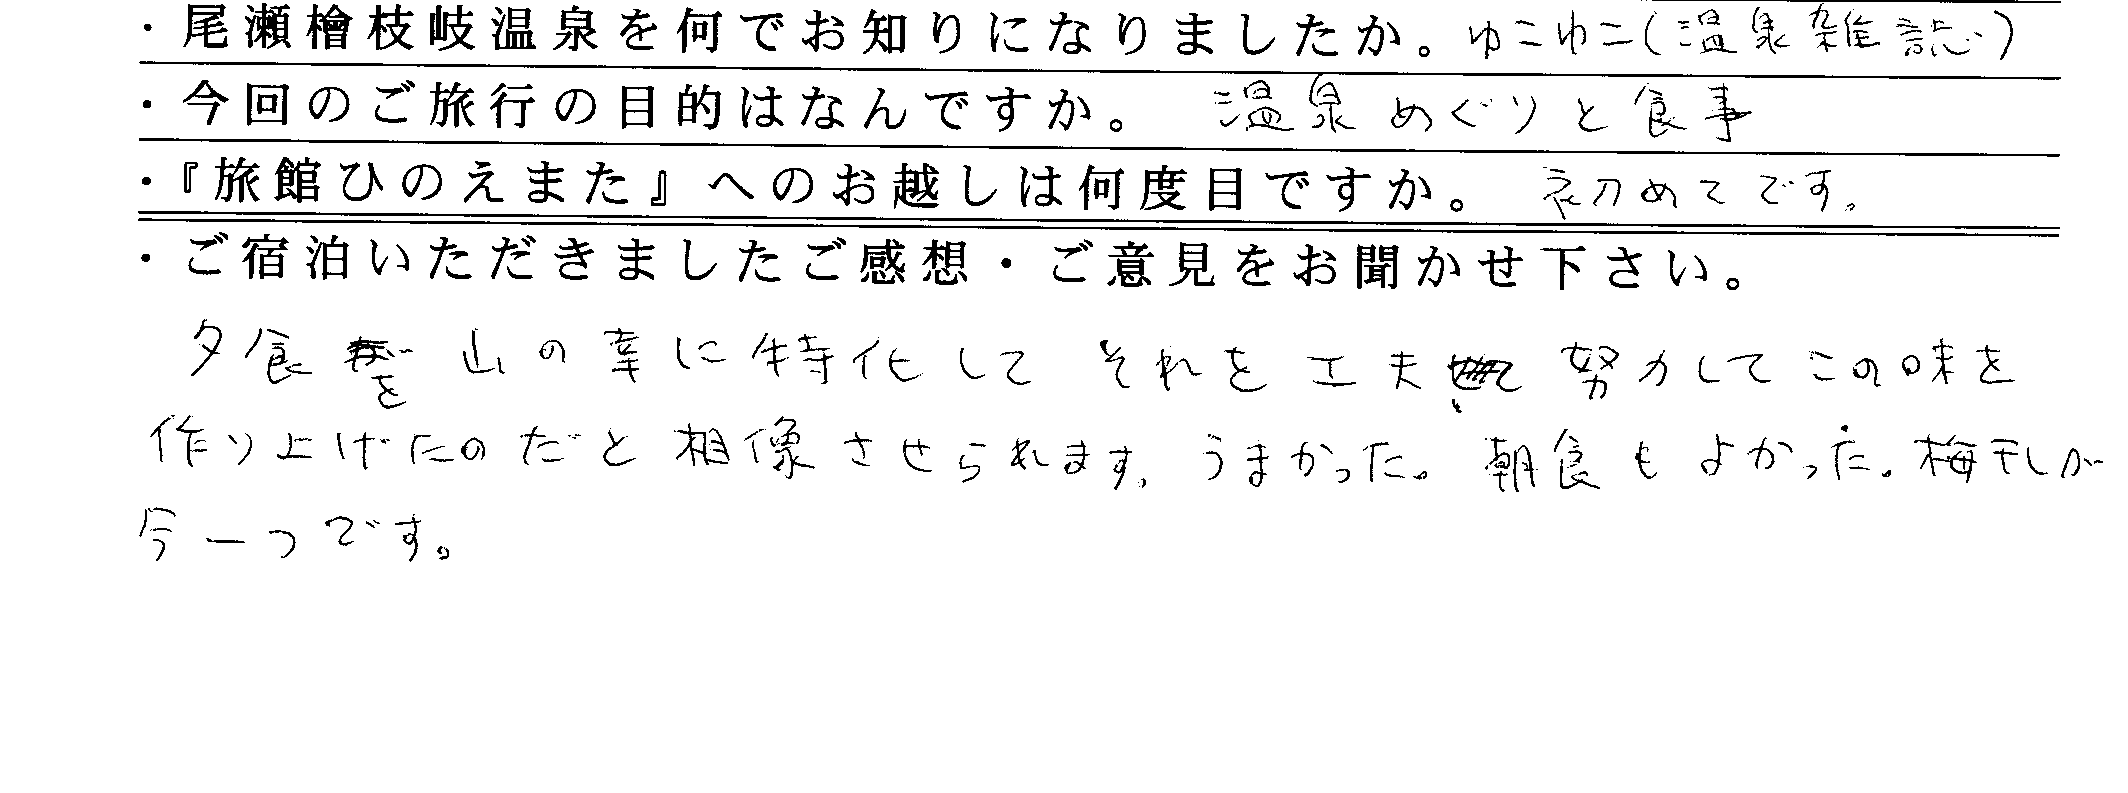 ・尾瀬檜枝岐温泉を何でお知りになりましたか。ゆこゆこ(温泉雑誌)
・今回のご旅行の目的はなんですか。 温泉めぐりと食事
・『旅館ひのえまた』へのお越しは何度目ですか。 初めてです。
・ご宿泊いただきましたご感想・ご意見をお聞かせ下さい。
夕食を山の幸に特化して それを工夫、努力してこの味を
作り上げたのだと相像させられます。うまかった。朝食もよかった。梅干しが
今一つです。